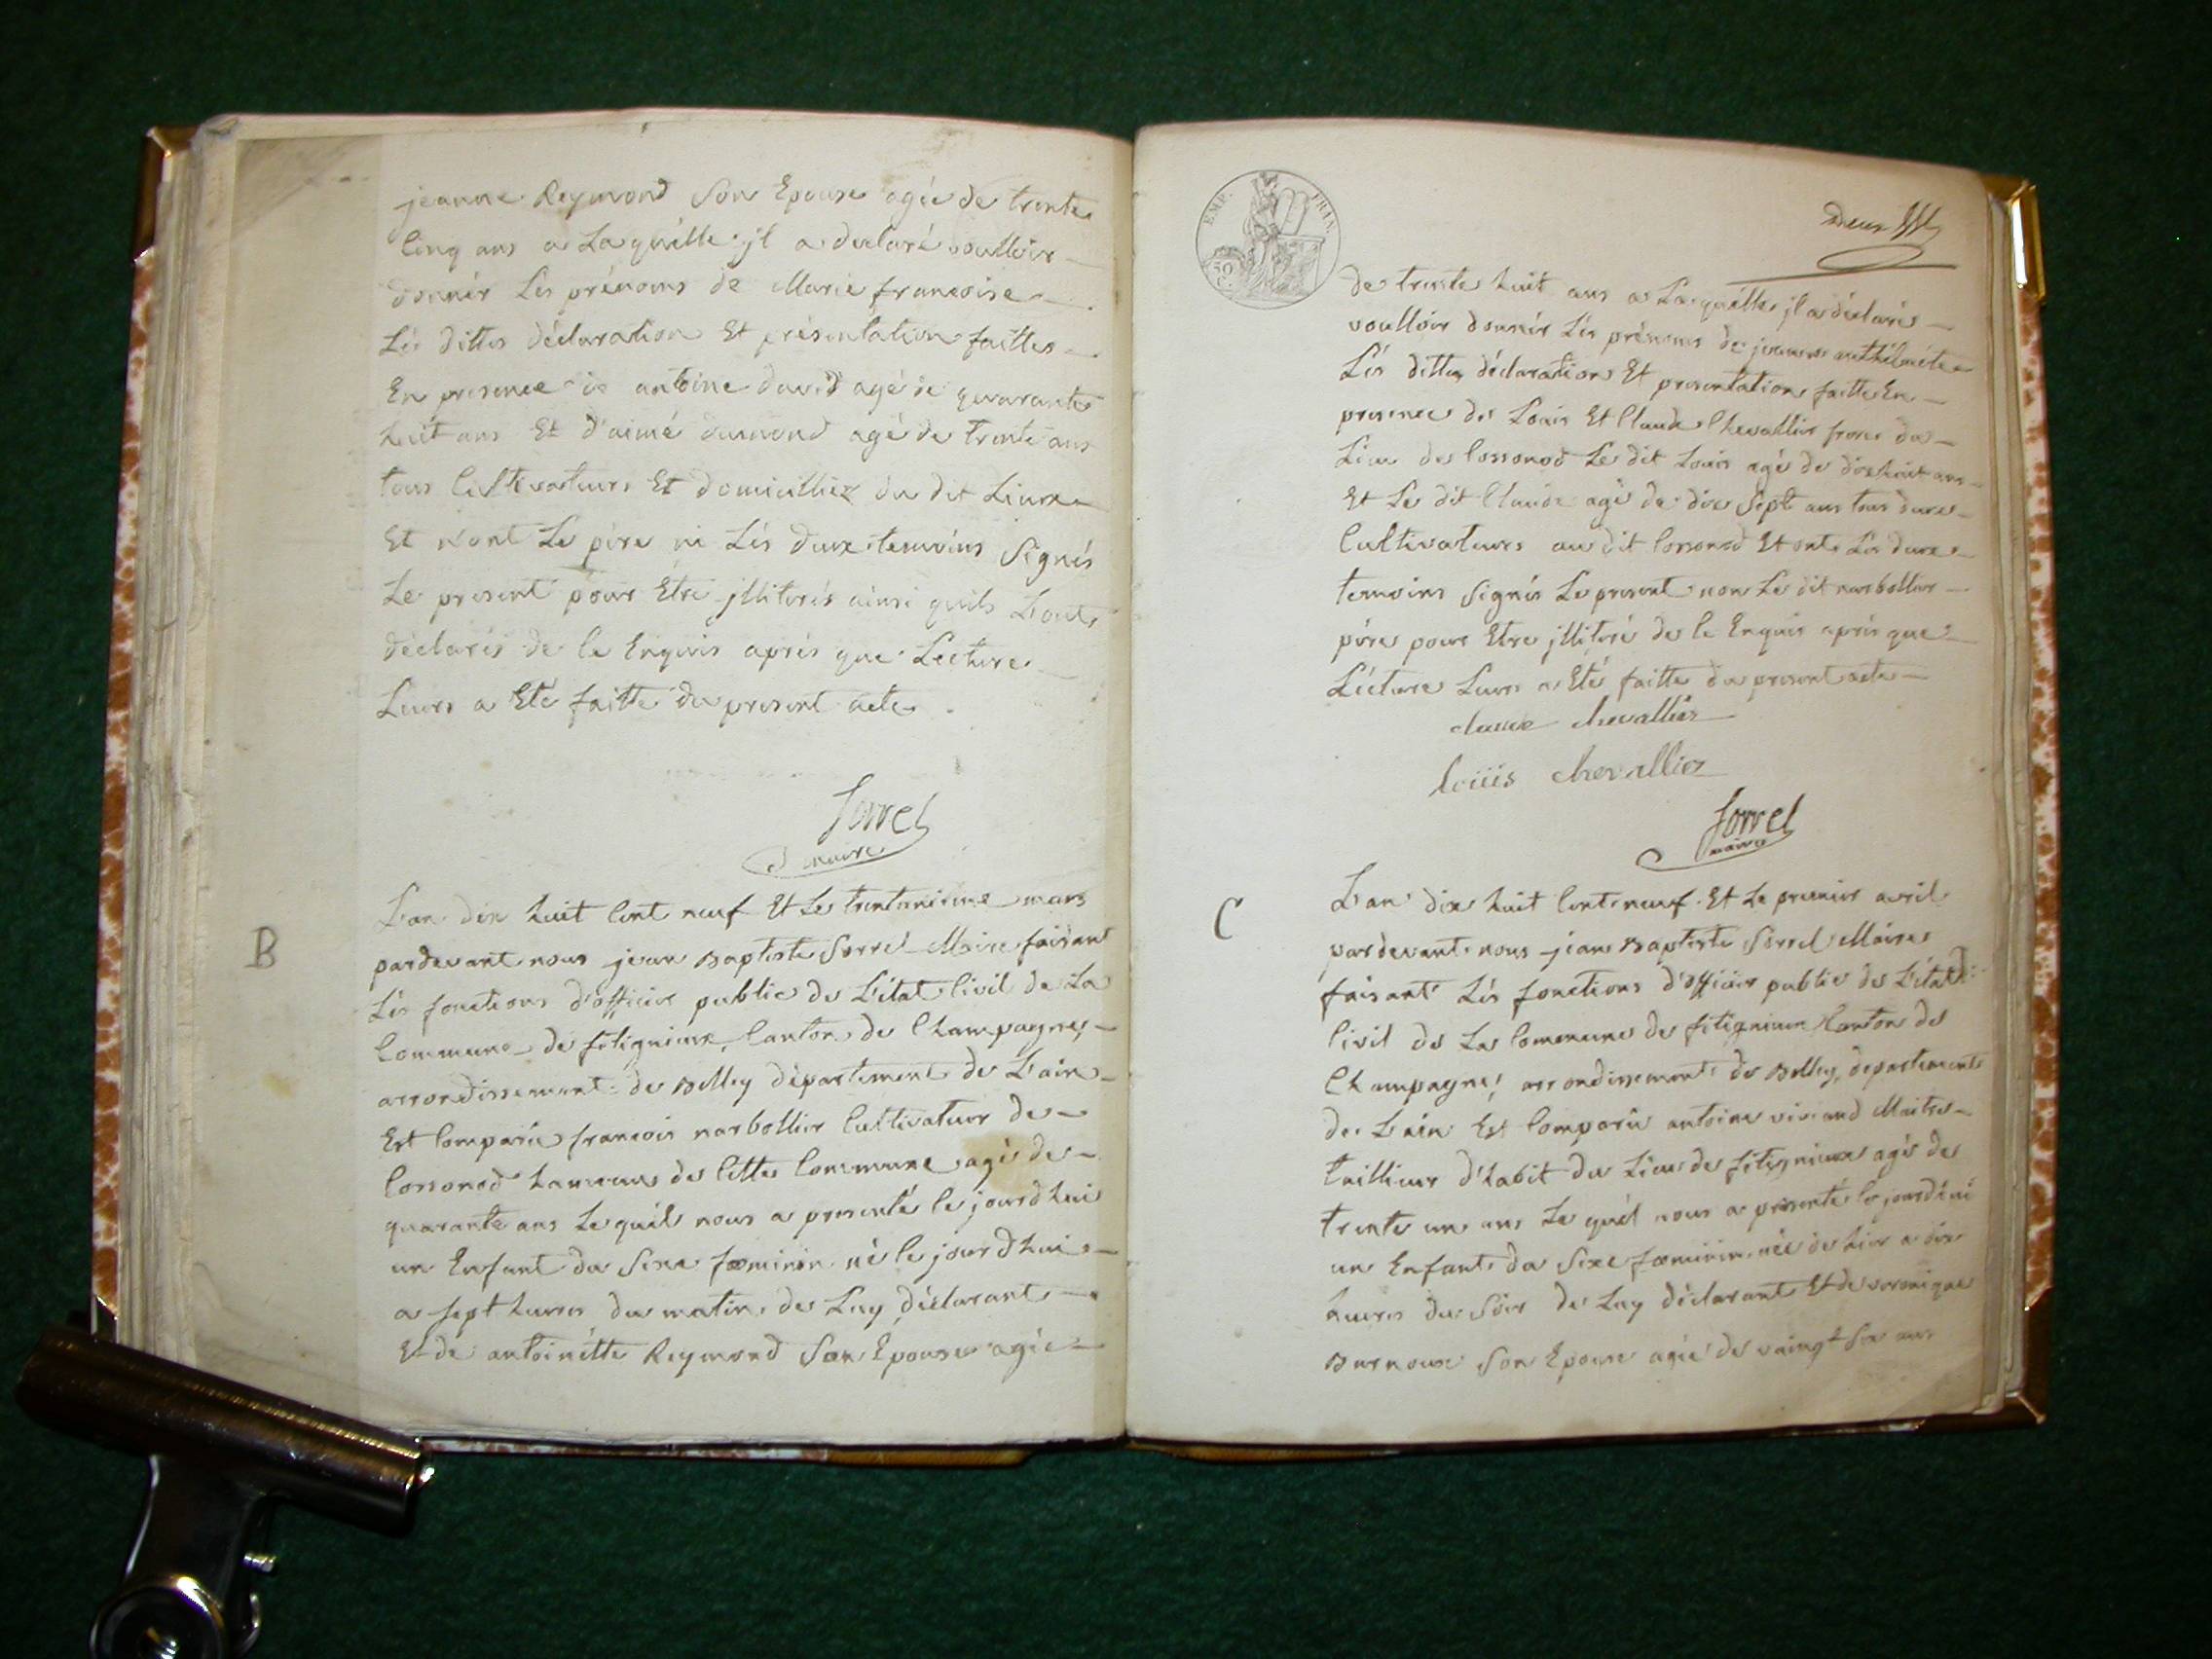 jeanne Reymond Son Epouse agée de trente
Cinq ans a Laquélle jl a declaré voulloir
donnér Lés prénoms de Marie francoise
Lés dittes déclaration Et présentation faittes
En presence de antoine david agé de quarante
huit ans Et d'aimé dumond agé de trente ans
tous Cultivateurs Et domicilliez du dit Lieux
Et n'ont Le pére ni Lés deux temoins Signés
Le present pour Etre jlliterés ainsi quils L'ont
déclarés de Ce Enquis aprés que Lecture
Leurs a Eté faitte du present acte
Sorrel
maire
B
L'an dix huit Cent neuf Et Le trentunieme mars
pardevant nous jean Baptiste Sorrel Maire faisant
Lés fonctions d'officier public de L'état Civil de La
Commune de fitignieux, Canton de Champagne,
arrondissement de Belley département de L'ain
Est Comparu francois narbollier Cultivateur de
Cossonod hameau de Cette Commune agé de
quarante ans Le quél nous a presenté Ce jourdhui
un Enfant du Sexe fœminin né Ce jourdhui
a Sept heures du matin de Luy déclarant
Et de antoinétte Reymond Son Epouse agée
EMP. FRAN.
50 C.
deux
de trente huit ans a Laquélle jl a déclaré
voulloir donnér Lés prénoms de jeanne
Lés dittes déclarations Et presentations faitte En
presence de Louis Et Claude Chevallier frere du
Lieu de Cossonod Le dit Louis agé de dix huit ans
Et Le dit Claude agé de dix Sept ans tous deux
Cultivateurs au dit Cossonod Et ont Lés deux
temoins Signés Le present non Le dit narbollier
pére pour Etre jlliteré de Ce Enquis aprés que
Lécture Leurs a Eté faitte du present acte
claude chevallier
louis chevallier
Sorrel
maire
C
L'an dix huit Cent neuf Et Le premier avril
pardevant nous jean Baptiste Sorrel Maire
faisant Lés fonctions d'officier public de L'état
Civil de La Commune de fitignieux Canton de
Champagne, arrondissement de Belley, departement
de L'ain Est Comparu antoine viviand Maitre
tailleur d'habit du Lieu de fitignieux agé de
trente un ans Le quél nous a présenté Ce jourdhui
un Enfant du Sexe fœminin née de hier a dix
heures du Soir de Luy déclarant Et de veronique
Burnoux Son Epouse agée de vaingt Six ans